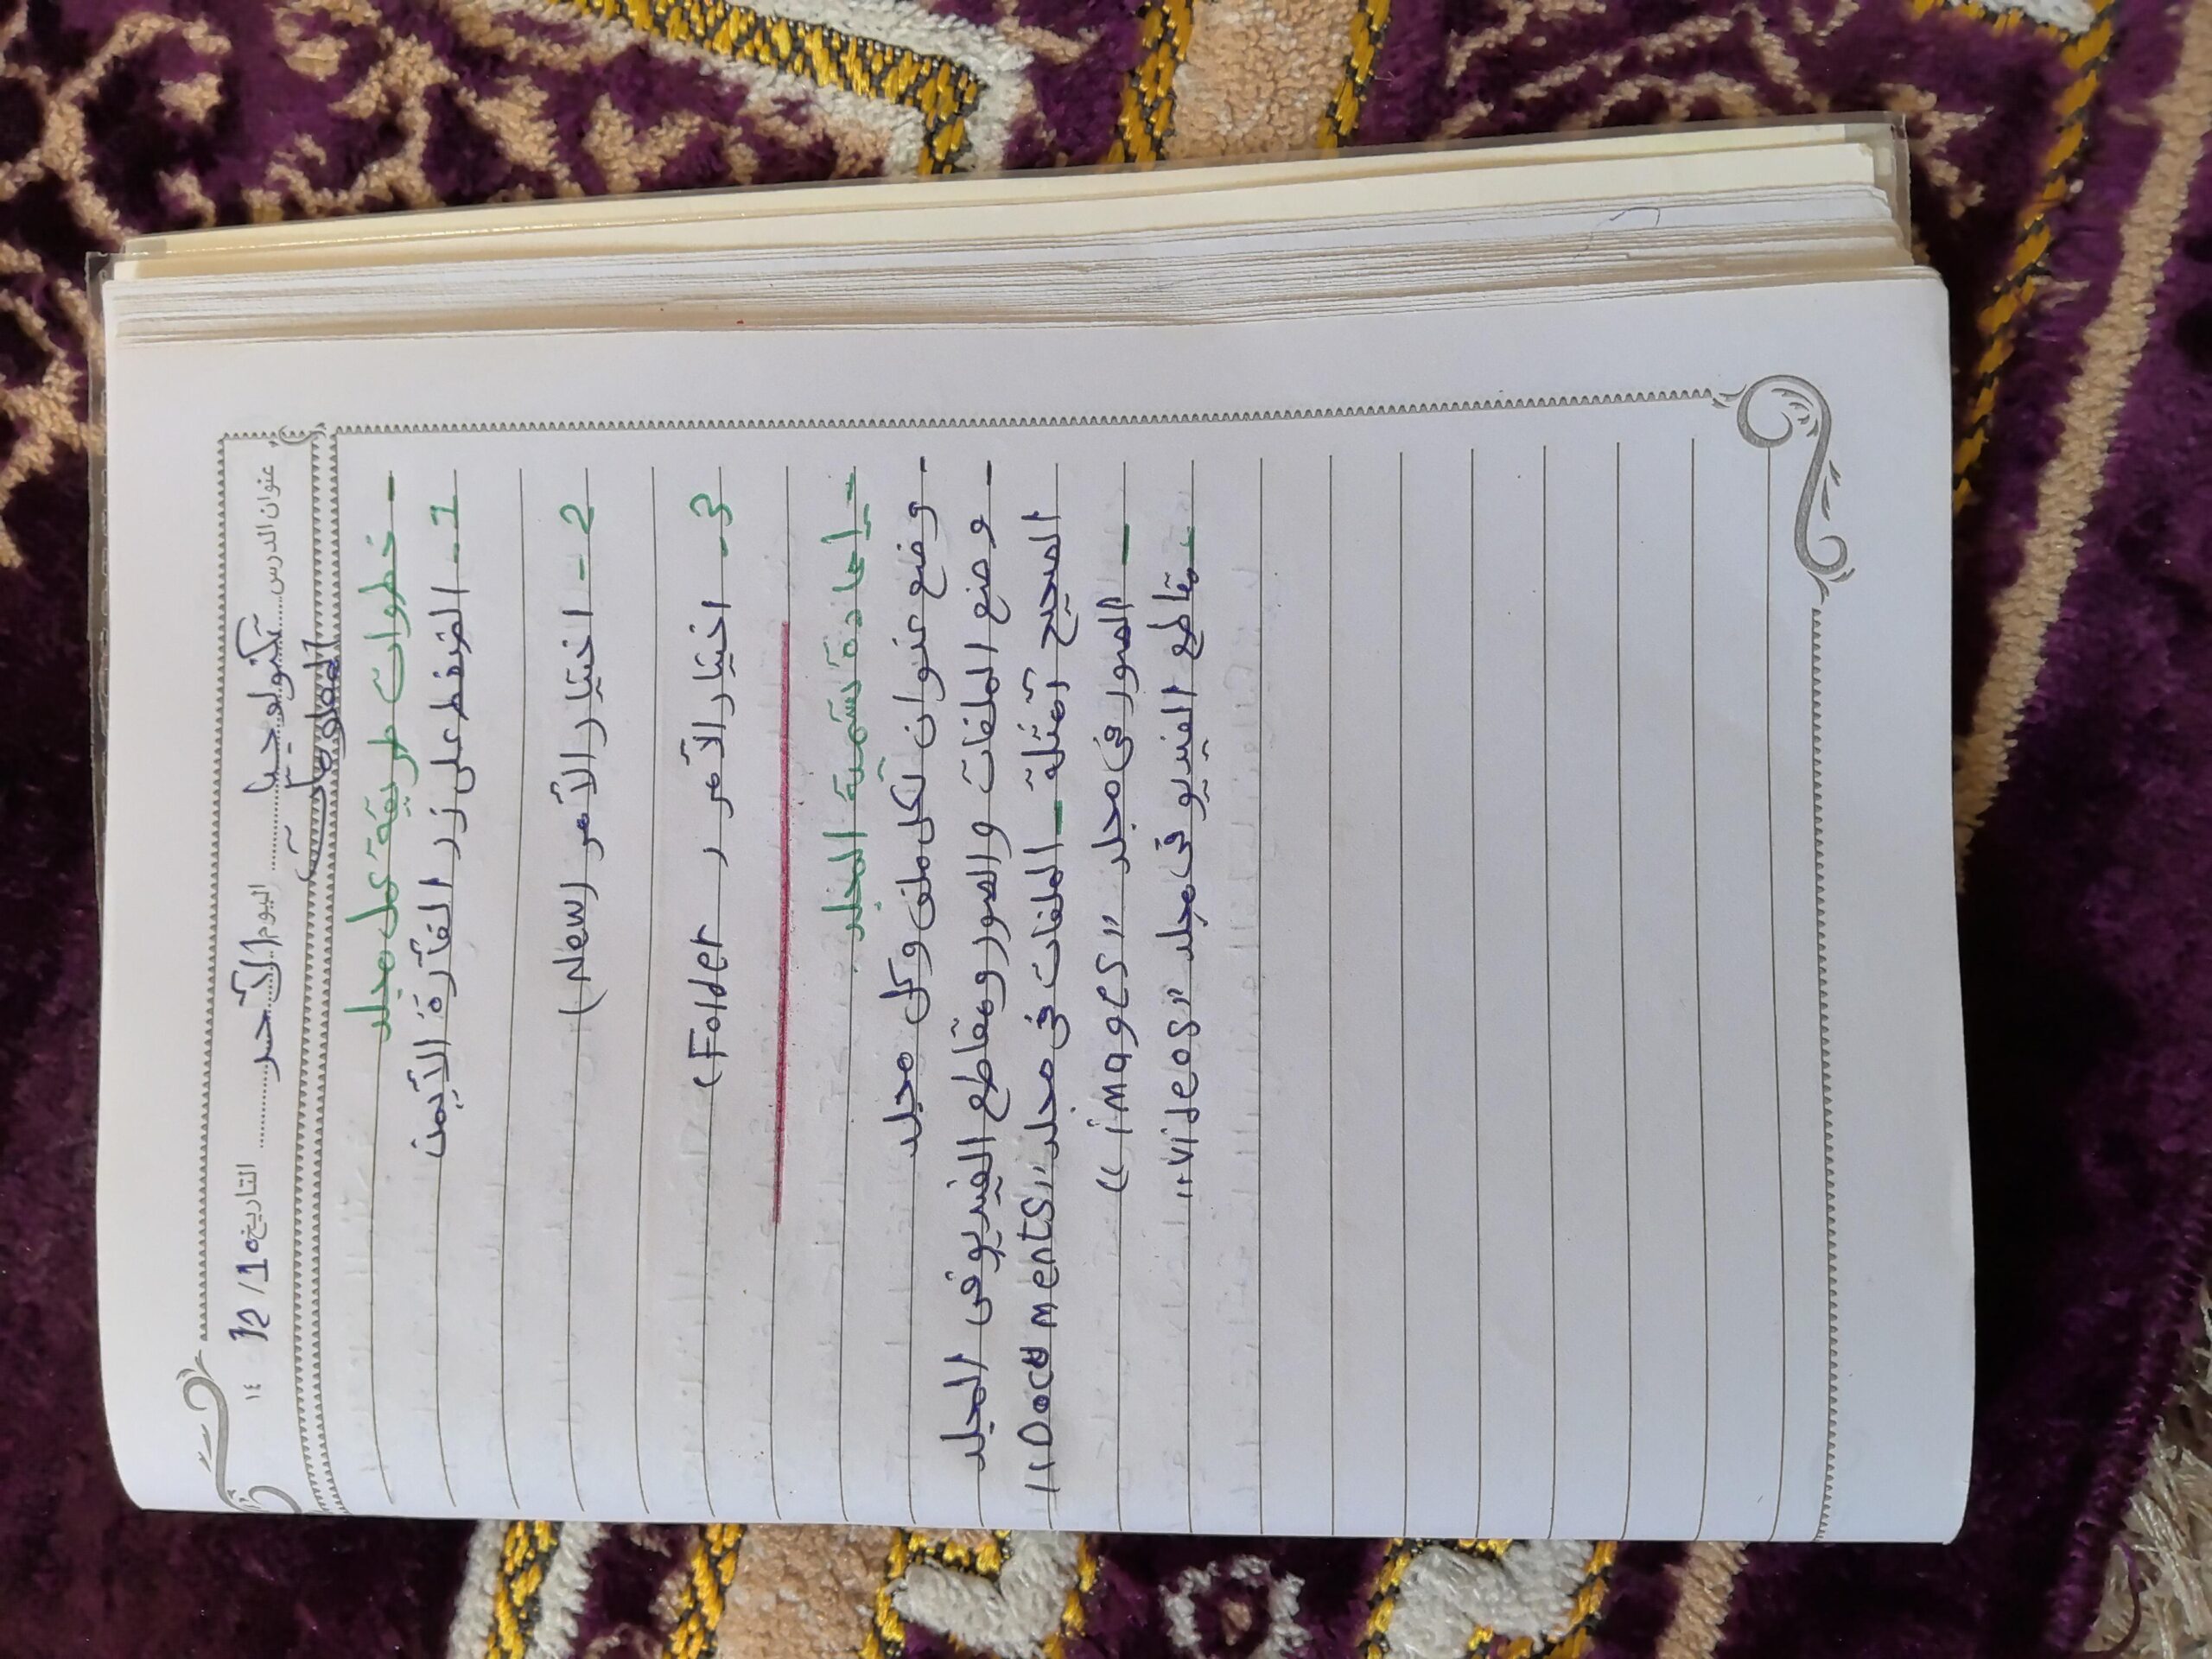 عنوان الدرس تكنولوجيا اليوم الأحد التاريخ 10/12 ١٤
المعلومات
- خطوات طريقة عمل مجلد
1- الضغط على زر الفأرة الأيمن
2- اختيار الأمر (New)
3- اختيار الأمر (Folder
- إعادة تسمية المجلد
- وضع عنوان لكل ملف وكل مجلد
- وضع الملفات والصور ومقاطع الفيديو فى المجلد
الصحيح أمثلة - الملفات فى مجلد "Documents"
- الصور فى مجلد "images"
- مقاطع الفيديو فى مجلد "videos"